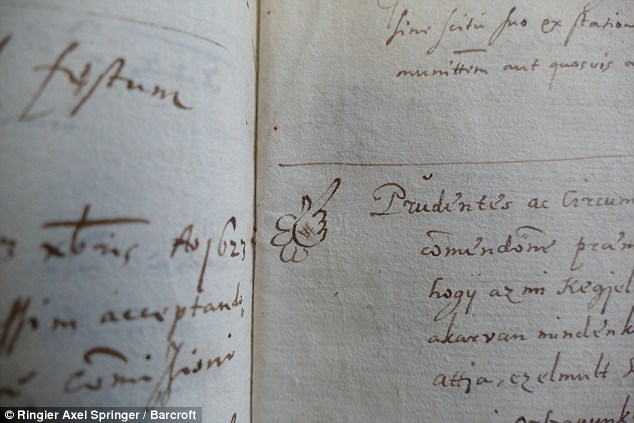 festum
xbris, Ao 1623
acceptando,
comissioni
sine scitu suo ex station
aut quosvis a
Prudentes ac Circum
comendõne præm
hogÿ az mi Kegjel
akarvan mindenk
attja, ez elmult
© Ringier Axel Springer / Barcroft